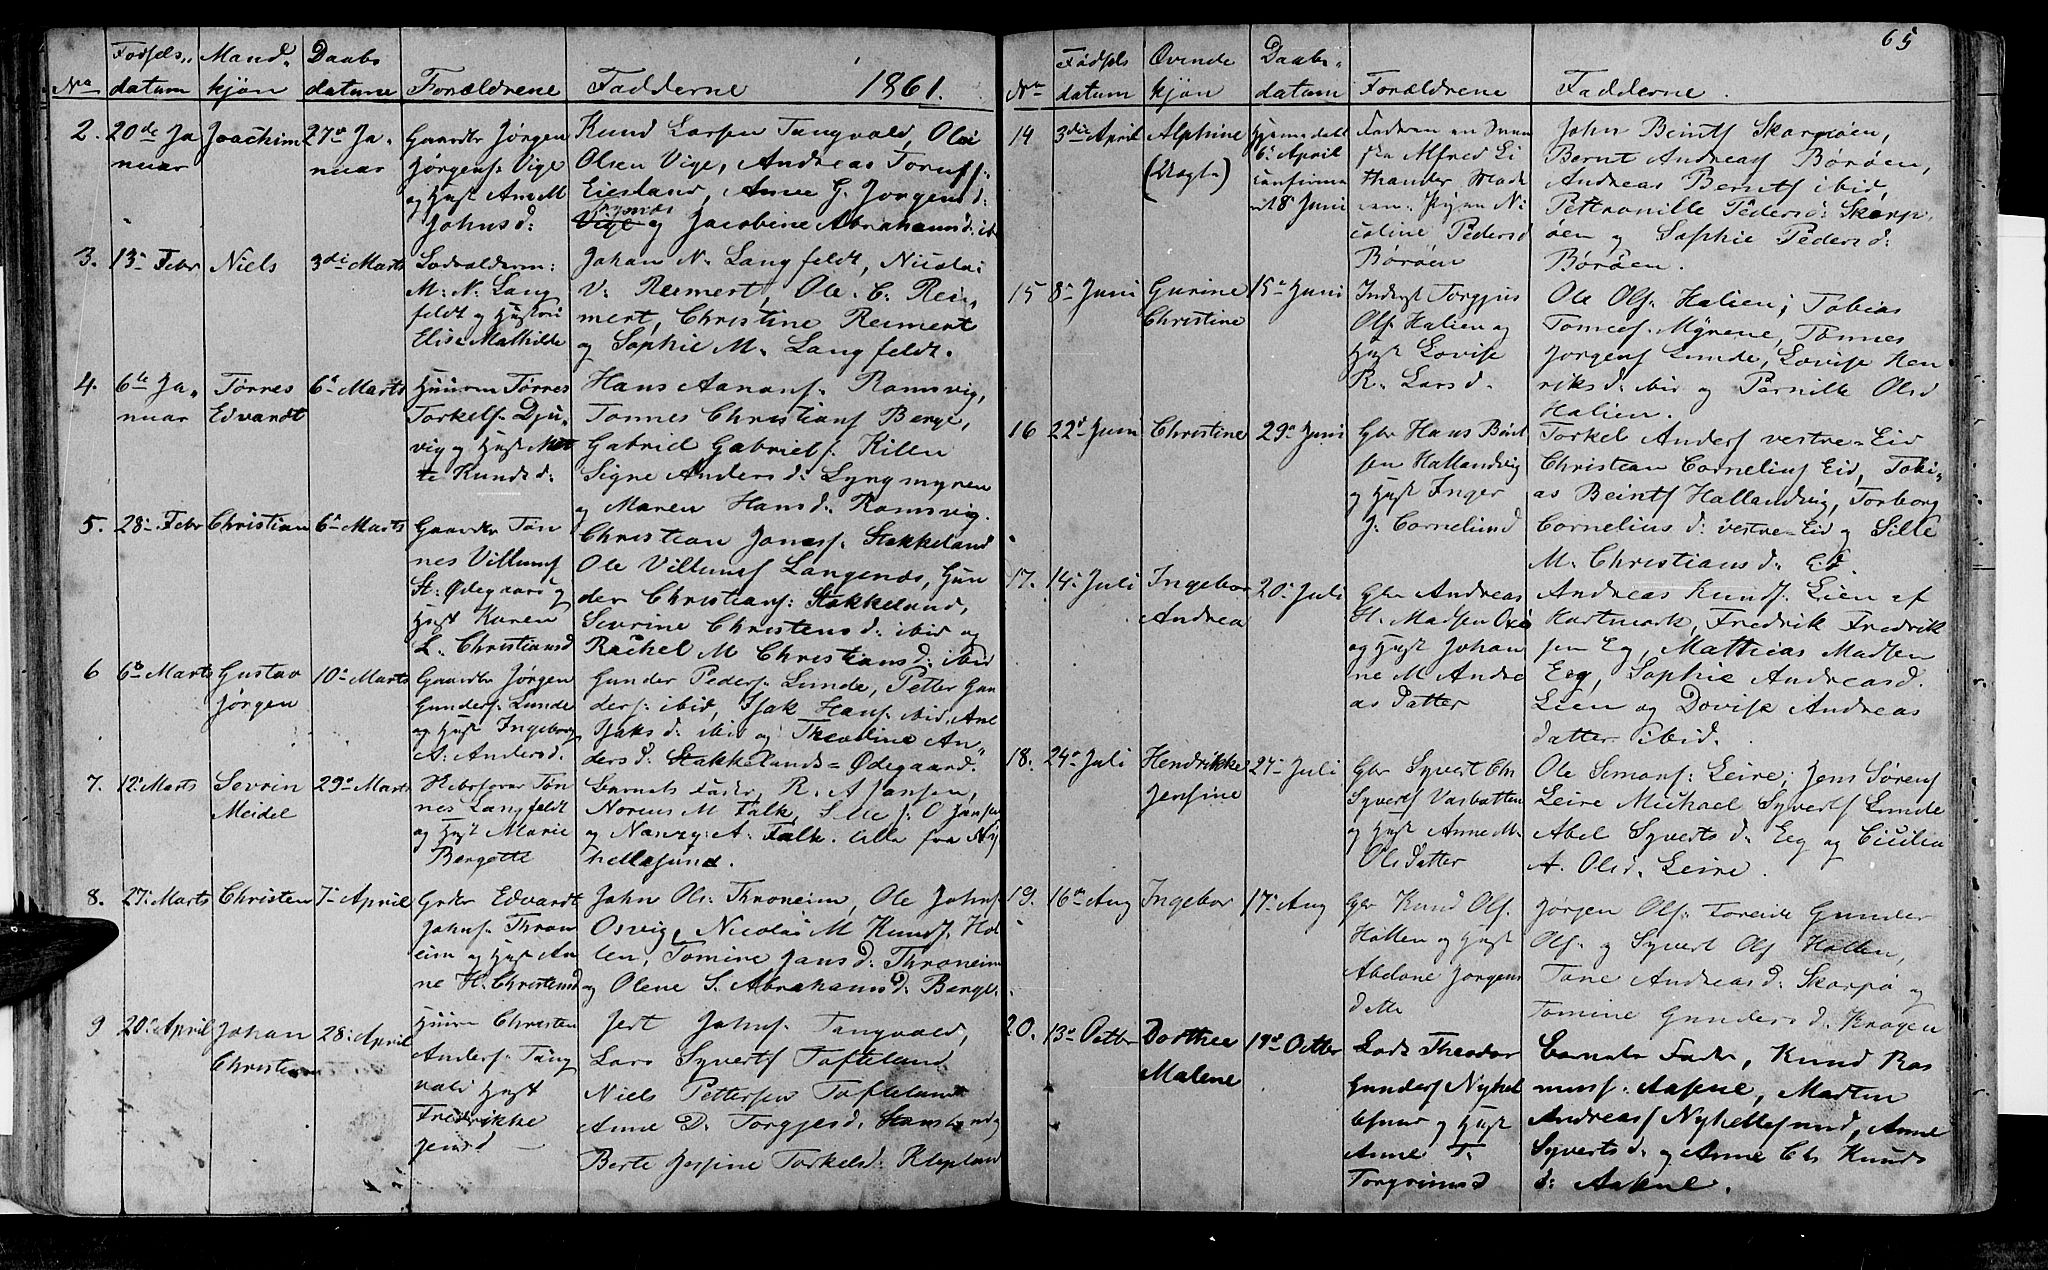 1861.
No Fødsels datum Mandkjøn Daabs datum Forældrene Fadderne
2. 20de Januar Joachim 27de Januar
Gaardbr Jørgen
Jørgens: Vige
og Hust Ane M
Johnsd:
Knud Larsen Tangvald, Ole
Olsen Vige, Andreas
Eiesland, Anne G. Jørgensd:
Vige og Jacobine Abrahamsd: ib
3. 13de Febr Niels 3die Marts
M. N. Lang
feldt og Hustru
Elise Mathilde
Johan N. Langfeldt, Nicolai
V. Reimert, Ole C. Rei,
mert, Christine Reimert
og Sophie M. Langfeldt.
4. 6te Januar Tønnes Edvardt 6te Marts
Huusm Tønnes
Torkels: Dju
vig og Hust Met
te Knudsd:
Hans Aanons: Romsvig,
Tønnes Christians Berge,
Gabriel Gabriels: Kilen
Signe Andersd: Lyngmyren
og Maren Hansd: Romsvig.
5. 28de Febr Christian 6te Marts
Gaardbr Tøn
nes Villums
St. Ødegaard og
Hust Karen
L. Christiansd
Christian Jonas: Stokkeland
Ole Villums Langenes, Gun
der Christians: Stokkeland,
Sevrine Christensd: ibid og
Rachel M Christiansd: ibid
6 6te Marts Gustav Jørgen 10de Marts
Gaardbr Jørgen
Gunders: Lunde
og Hust Ingeborg
A. Andersd.
Gunder Peders: Lunde, Petter Gun
ders: ibid, Isak Hans: ibid, Ane
Isaksd: ibid og Theodine An
dersd: Stokkelands=Ødegaard.
7. 12te Marts Sevrin Meidel 29de Marts
Tøn
nes Langfeldt
og Hust Marie
Bergette
Barnets Fader, R. A Jansen,
M Falk, O Jansen
og Nanzy A. Falk. alle fra Ny
hellesund.
8. 27de Marts Christen 7de April
Grdbr Edvardt
Johns: Thron
eim og Hust An
ne H. Christensd
John Ols: Throneim, Ole Johns:
Osvig, Nicolai M Knuds. Hol
len, Tomine Jansd: Throneim
og Olene S. Abrahamsd: Berge.
9 20de April Johan Christian 28de April
Huusm Christen
Anders: Tang
vald Hust
Fredrikke
Jensd
Jert Johns: Tangvald,
Lars Syverts Tofteland
Niels Pettersen Tofteland
Anne D. Torgjesd:
Berte Jessine Torkelsd: Klepland
65
No Fødsels datum Qvindekjøn Daabs datum Forældrene Fadderne.
14 3die April Alphine (Uægte) Hjemmedøbt 6te April confirmeret 8de Juni
Faderen en Svan
ske Alfred Li
thander, Mode
ren: Pigen Ni
coline Pedersd
Børøen
John Beints Skarpøen,
Bernt Andreass Børøen,
Andreas Bernts ibid,
Petronille Pedersd: Skarp,
øen og Sophie Pedersd:
Børøen.
15 8de Juni Gurine Christine 15de Juni
Inderst Torgjus
Ols: Halien og
Hust Lovise
R. Larsd.
Ole Ols: Halien, Tobias
Tomces: Myrene, Tønnes
Jørgens Lunde, Lovise Hen
riksd: ibid og Pernille Olsd
Halien.
16 22de Juni Christine 29de Juni
Gbr Hans Bent
sen Hallandvig
og Hust Inger
J: Corneliusd
Torkel Anders vestre=Eid
Christian Cornelius Eid, Tobi=
as Beints Hallandvig, Torborg
Corneliusd: vestre=Eid og Sille
M. Christiansd: Eid.
17. 14de Juli Ingebor Andrea 20de Juli
Gbr Andreas
H. Madsen
og Hust Johan
ne M. Andre
as Datter
Andreas Knuds: Lien af
Hartmark, Fredrik Fredrik
sen Eg, Mathias Madsen
Eeg, Sophie Andreasd.
Lien og Dovise Andreas
datter ibid.
18. 24de Juli Hendrikke Jensine 27de Juli
Gbr Syvert Chr
Syverts Vasbotten
og Hust Anne M.
Olsdatter
Ole Simons: Leire, Jens Sørens
Leire Michael Syverts Lunde
Abel Syvertsd: Eeg og Cicilia
A. Olsd. Leire.
19. 16de Aug Ingebor 17de Aug
Gbr Knud Ols.
Hollen og Hust
Abelone Jørgens
datter
Jørgen Ols: Toreide Gunder
Ols: og Syvert Ols Hollen,
Tone Andreasd: Skarpø og
Tomine Gundersd. Kragen
20. 13de Octbr Dorthee Malene 19de Octbr
Lods Theodor
Gunders Nyhel
lesund og Hust
Anne T.
Torgrimsd
Barnets Fader, Knud Ras
muss: Aapne, Martin
Andreass Nyhellesund, Anne
Syvertsd: og Anne Ch: Knuds
d: